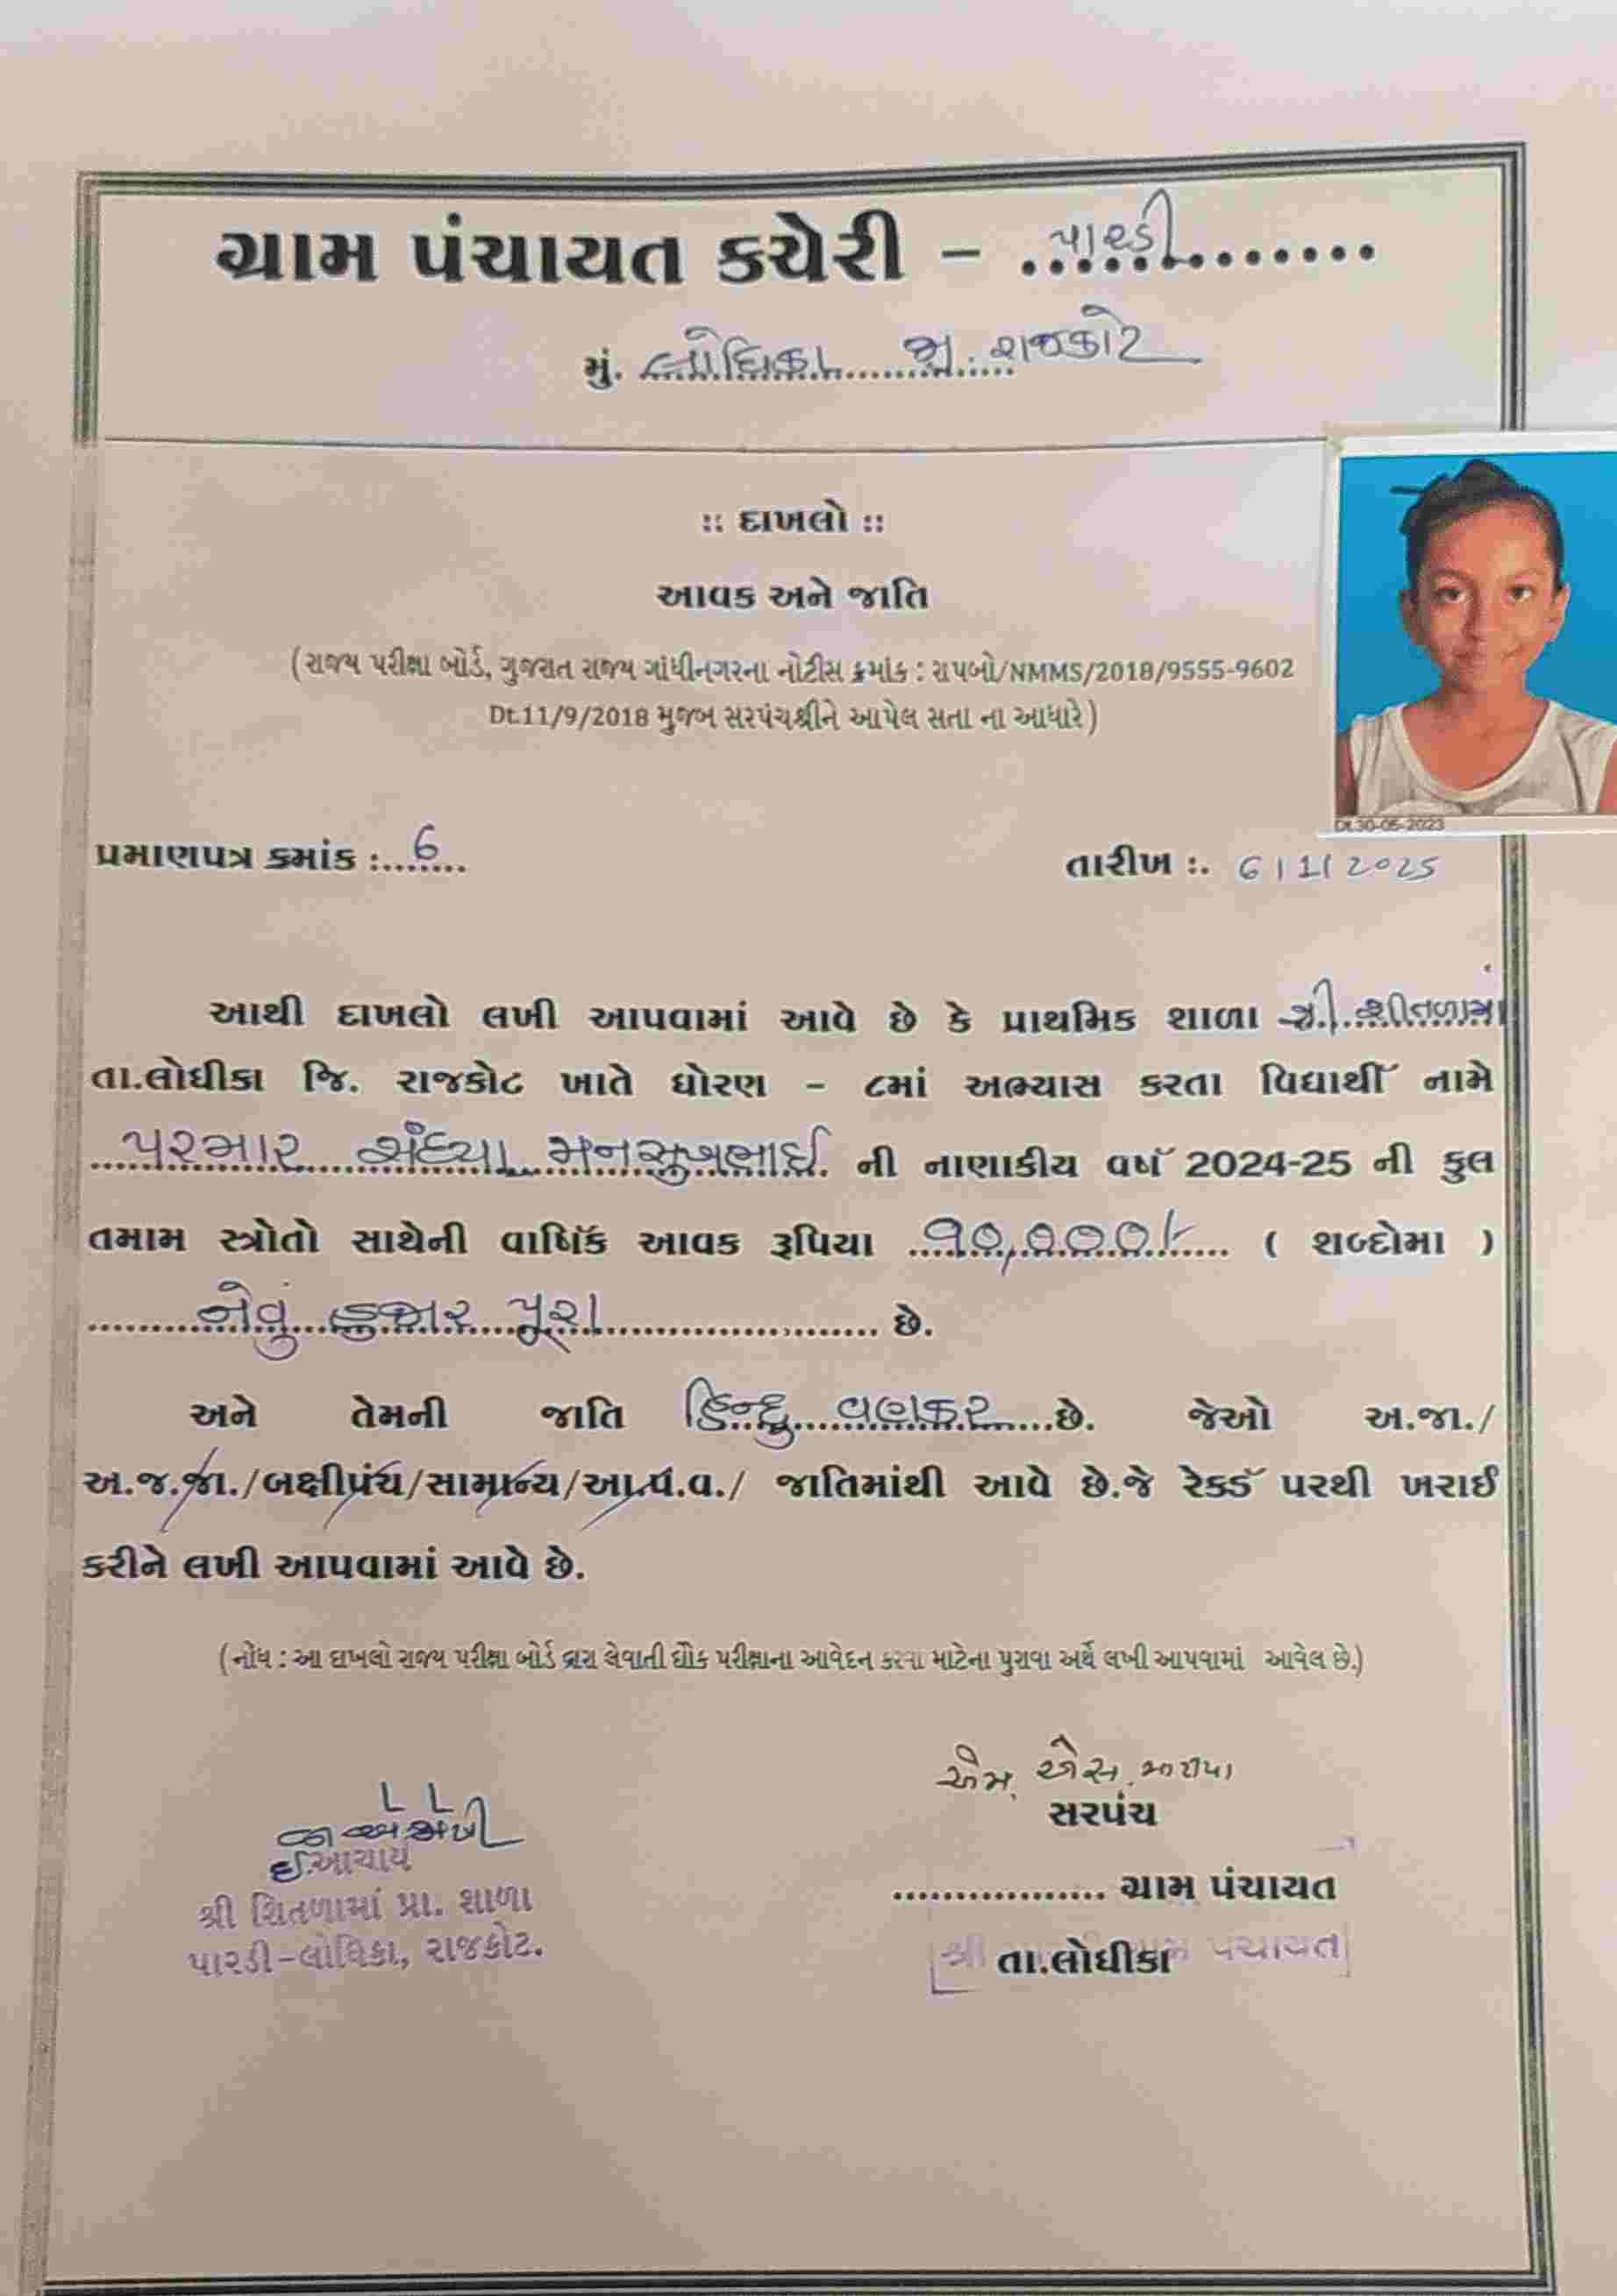 ગ્રામ પંચાયત કચેરી - પારડી
મું. લોધિકા જી. રાજકોટ
:: દાખલો ::
આવક અને જાતિ
(રાજ્ય પરીક્ષા બોર્ડ, ગુજરાત રાજ્ય ગાંધીનગરના નોટીસ ક્રમાંક : રાપબો/NMMS/2018/9555-9602
Dt.11/9/2018 મુજબ સરપંચશ્રીને આપેલ સતા ના આધારે)
Dt.30-06-2023
પ્રમાણપત્ર ક્રમાંક :. 6
તારીખ :. 6/1/2025
આથી દાખલો લખી આપવામાં આવે છે કે પ્રાથમિક શાળા શ્રી શીતળામાં
તા.લોધીકા જિ. રાજકોટ ખાતે ધોરણ - ૮માં અભ્યાસ કરતા વિદ્યાર્થી નામે
પરમાર સંધ્યા મનસુખભાઈ ની નાણાકીય વર્ષ 2024-25 ની કુલ
તમામ સ્ત્રોતો સાથેની વાર્ષિક આવક રૂપિયા ૯૦,૦૦૦/- ( શબ્દોમા )
નેવું હજાર પૂરા છે.
અને તેમની જાતિ હિન્દુ વણકર છે. જેઓ અ.જા./
અ.જ.જા./બક્ષીપંચ/સામાન્ય/આ.પ.વ./ જાતિમાંથી આવે છે.જે રેકર્ડ પરથી ખરાઈ
કરીને લખી આપવામાં આવે છે.
(નોંધ : આ દાખલો રાજ્ય પરીક્ષા બોર્ડ દ્વારા લેવાતી શૈક્ષ પરીક્ષાના આવેદન કરવા માટેના પુરાવા અર્થે લખી આપવામાં આવેલ છે.)
એમ. એસ.
સરપંચ
ગ્રામ પંચાયત
શ્રી પંચાયત
તા.લોધીકા
ઈ.આચાર્ય
શ્રી શિતળામાં પ્રા. શાળા
પારડી-લોધિકા, રાજકોટ.